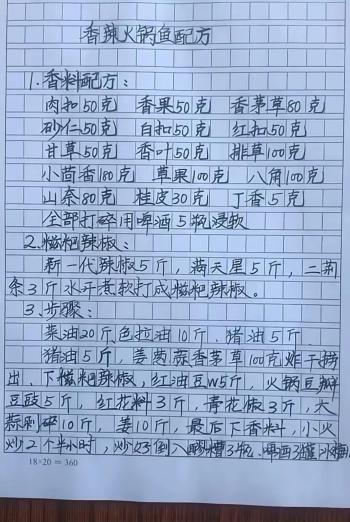 香辣火锅鱼配方
1.香料配方：
肉扣50克 香果50克 香茅草80克
砂仁50克 白扣50克 红扣50克
甘草50克 香叶50克 排草100克
小茴香180克 草果100克 八角100克
山奈80克 桂皮30克 丁香5克
全部打碎用啤酒5瓶浸软
2.糍粑辣椒：
新一代辣椒5斤，满天星5斤，二荆
条3斤水开煮软打成糍粑辣椒。
3.步骤：
菜油20斤色拉油10斤．猪油5斤
猪油5斤，姜葱蒜香茅草100克炸干捞
出、下糍粑辣椒，红油豆W5斤，火锅豆瓣
豆豉5斤，红花料3斤，青花椒3斤，大
蒜剁碎10斤，姜10斤，最后下香料，小火
炒2个半小时，炒好倒入醪糟3瓶．啤酒3罐
18×20＝360